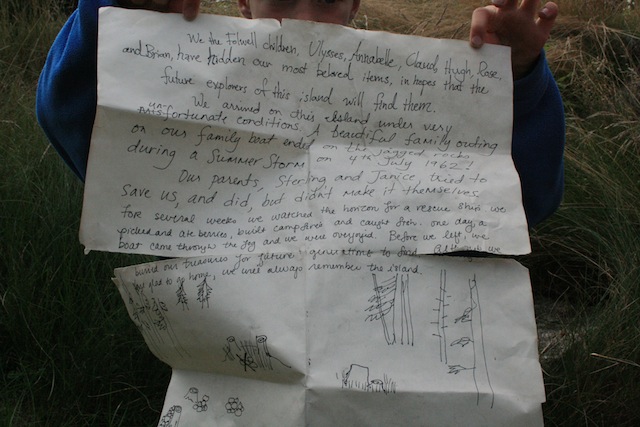 We the Folwell children, Ulysses, Annabelle, Claud, Hugh, Rose,
and Brian, have hidden our most beloved items, in hopes that the
future explorers of this island will find them.
We arrived on this Island under very
un-fortunate conditions. A beautiful family outing
on our family boat ended on the jagged rocks,
during a Summer Storm on 4th July 1962!
Our parents, Sterling and Janice, tried to
save us, and did, but didn't make it themselves.
For several weeks we watched the horizon for a rescue ship. we
picked and ate berries, built campfires and caught fish. one day, a
boat came through the fog and we were overjoyed. Before we left, we
buried our treasures for future generations to find. Although we
glad to go home, we will always remember the island.